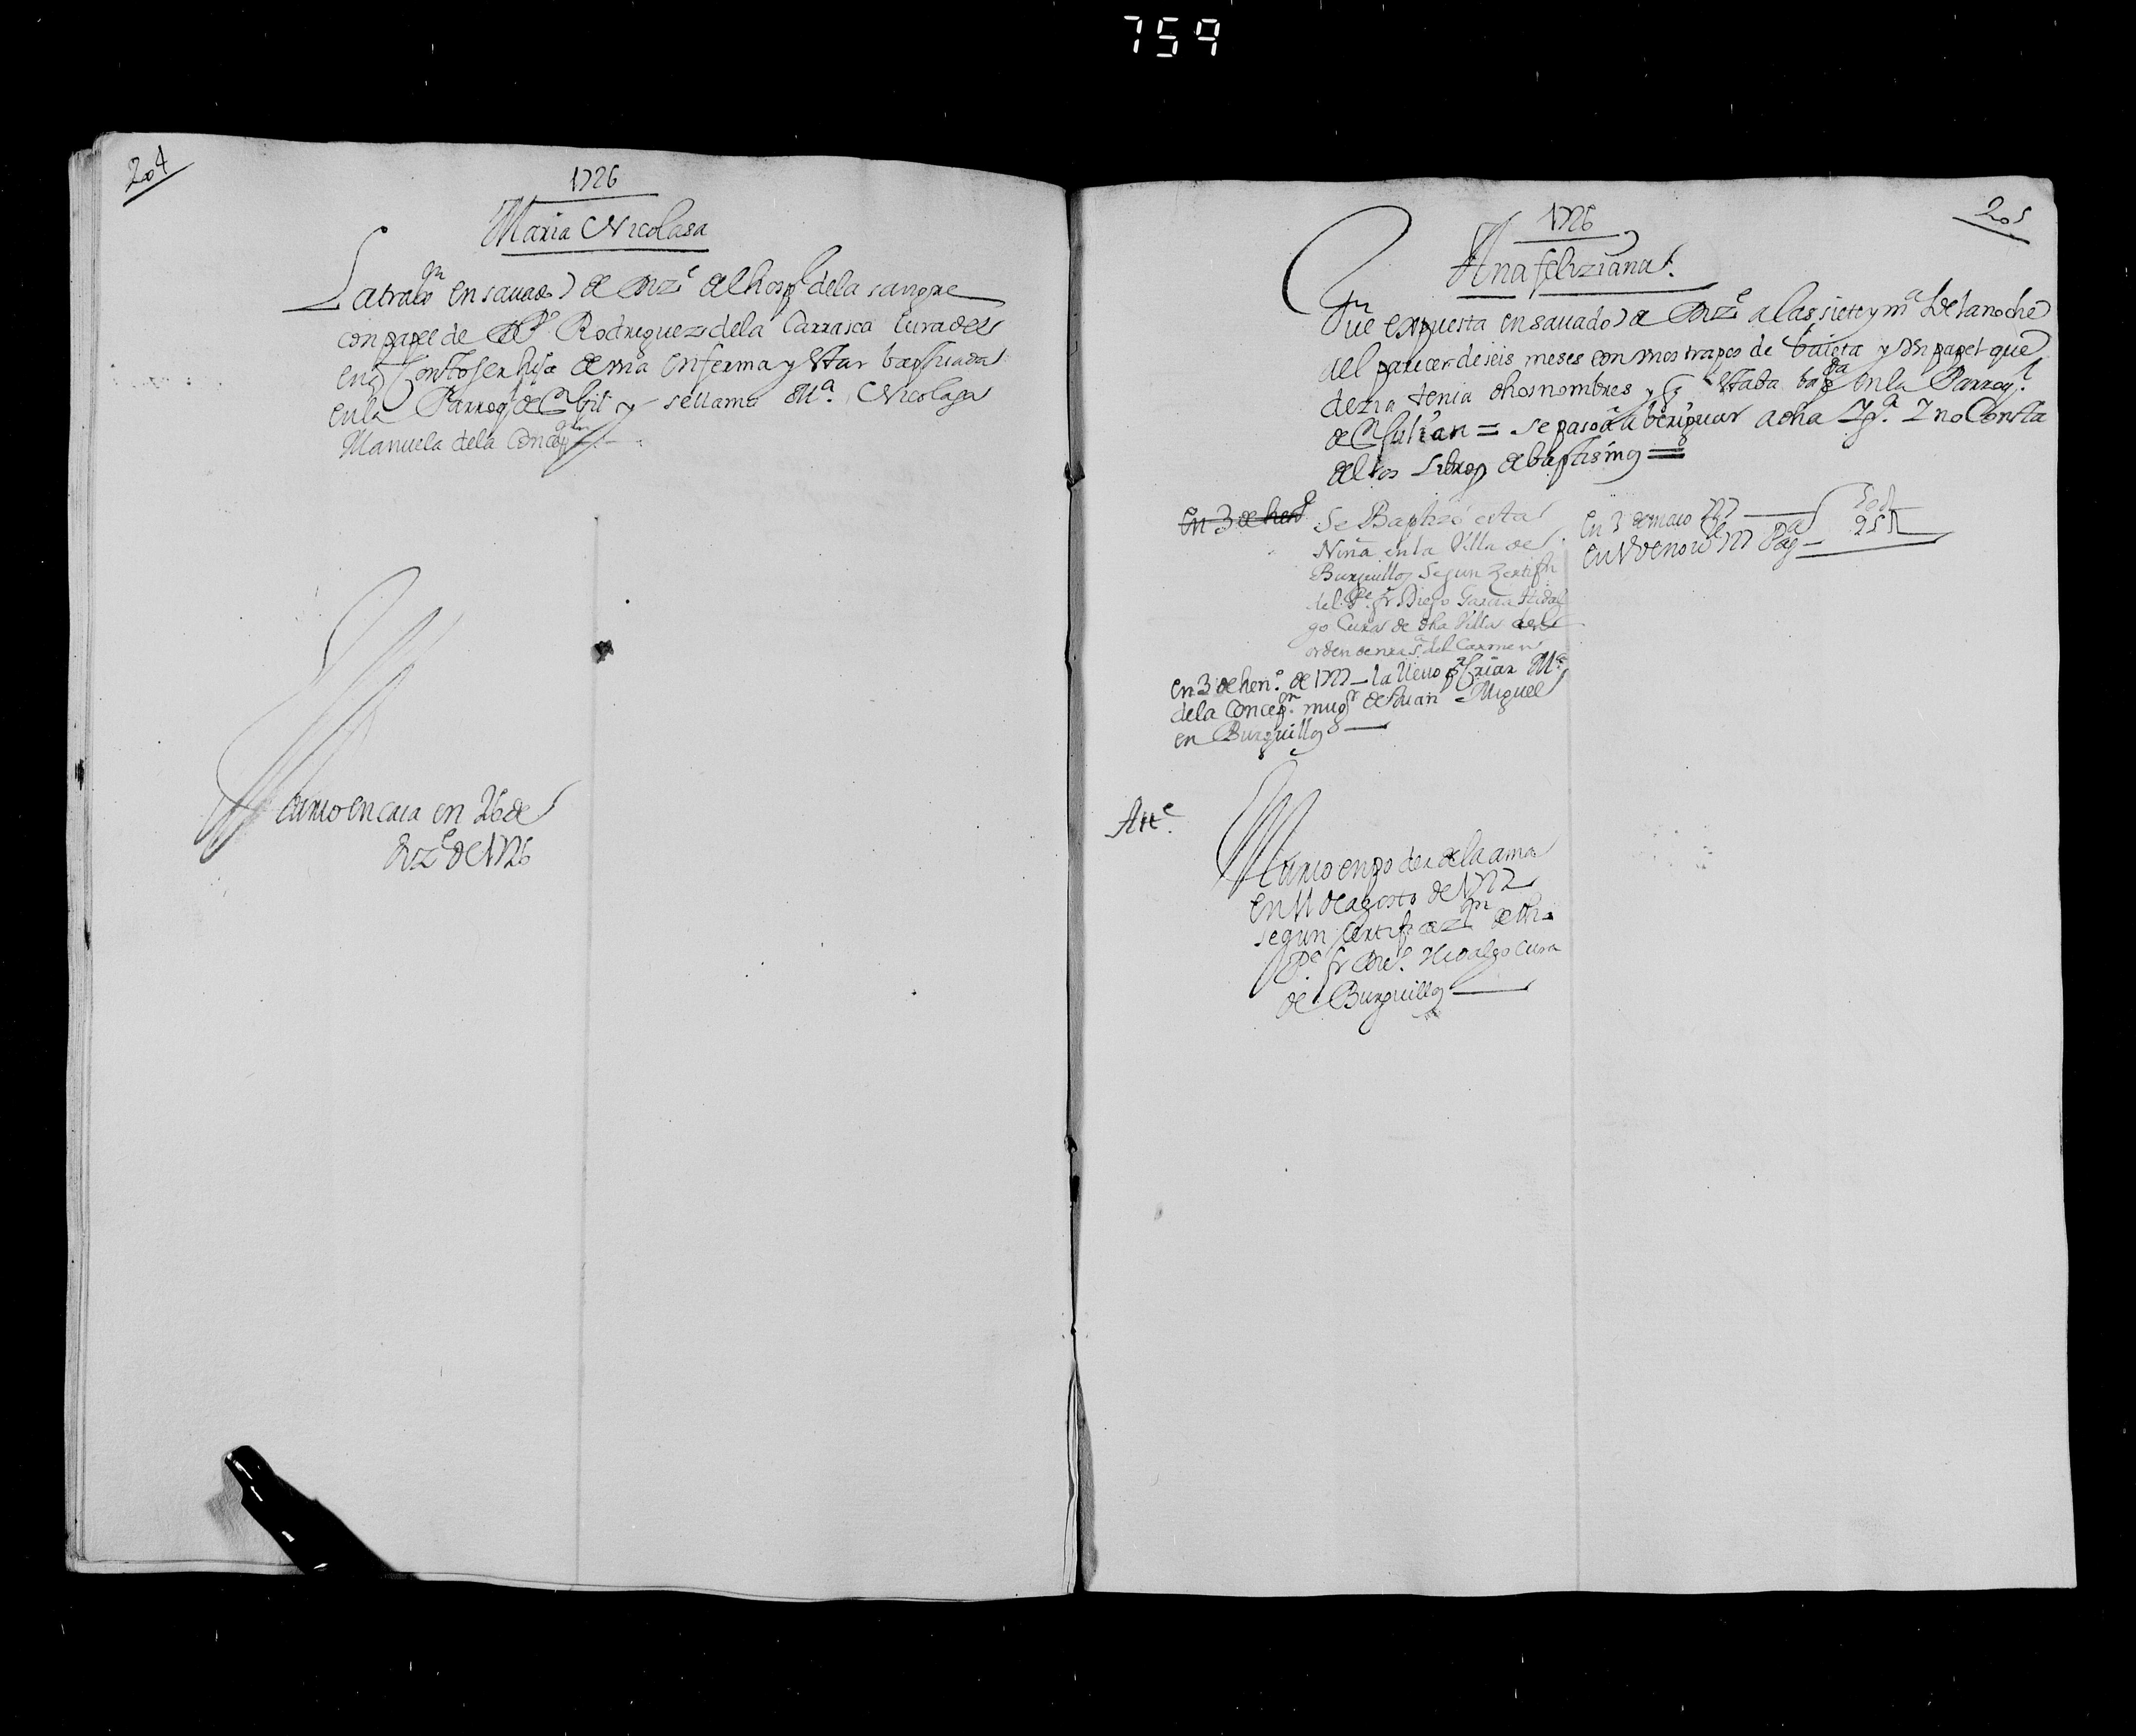 759
204
1726
Maria Nicolasa
La trajeron en sauado 7 de Diz.e del hosp.l dela sangre
con papel de Rodriguez dela Carrasca Cura del
en q consto ser hija de vna enferma y star baptizada
en la Parroq.a de Sn Gil y se llama M.a Nicolasa
Manuela dela Concepn
Murio en casa en 26 de
Diz.e de 1726
205
1726
Ana feliziana
Fue expuesta en sauado 7 de Diz.e a las siete y m.a de la noche
del parecer de seis meses con vnos trapos de baieta y vn papel que
dezia tenia dhos nombres y q staba bapda en la Parroq.a
de Sn Julian = se paso a aberiguar a dha Ygl.a Y no Consta
de los Libros de baptismos =
En 3 de hen.o
Se Baptizó esta
Niña en la Villa de
Burguillos segun Zertifn
del P.e fr Diego Garcia Hidal
go Cura de dha Villa del
orden de nra S.a del Carmen
en 3 de hen.o de 1727 la lleuo pa Criar M.a
dela Concepn. mugr de Juan Miguel
en Burguillos
En 3 de maio 727
En 1 de nou.e 727 Pag
25
Ate.
Murio en poder de la ama
en 11 de agosto de 1727
segun Certificazn de
P.e fr Die.o Hidalgo Cura
de Burguillos